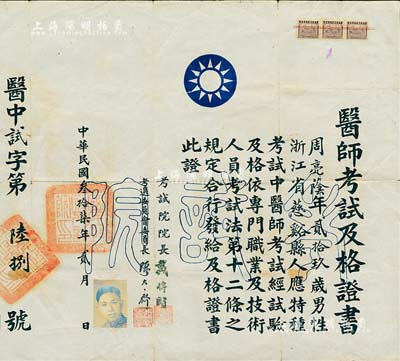 醫師考試及格證書
周亮蔭年貳拾玖歲男性
浙江省慈谿縣人應特種
考試中醫師考試經試驗
及格依專門職業及技術
人員考試法第十二條之
規定合行發給及格證書
此證
考試院院長
中華民國叁拾柒年貳月 日
醫中試字第 陸捌 號